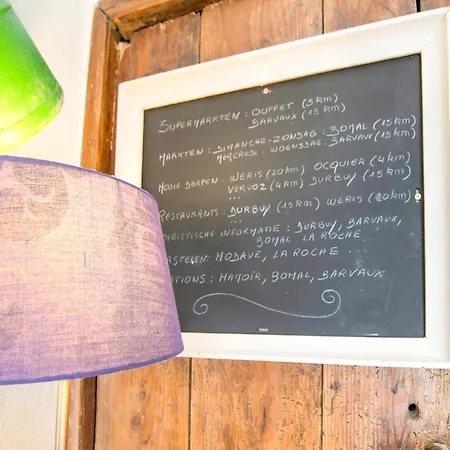 SUPERMARKTEN : OUFFET (5km)
BARVAUX (15 km)
MARKTEN : DIMANCHE-ZONDAG : BOMAL (15 km)
MERCREDI - WOENSDAG - BARVAUX (15 km)
MOOIE DORPEN : WERIS (20 km) OCQUIER (4 km)
... VERVOZ (4 km) DURBUY (15 km)
RESTAURANTS : DURBUY (15 km) WERIS (20 km)
...
OERISTISCHE INFORMATIE : DURBUY, BARVAUX,
BOMAL, LA ROCHE
ASTELEN : MODAVE, LA ROCHE ...
ATIONS : HAMOIR, BOMAL, BARVAUX